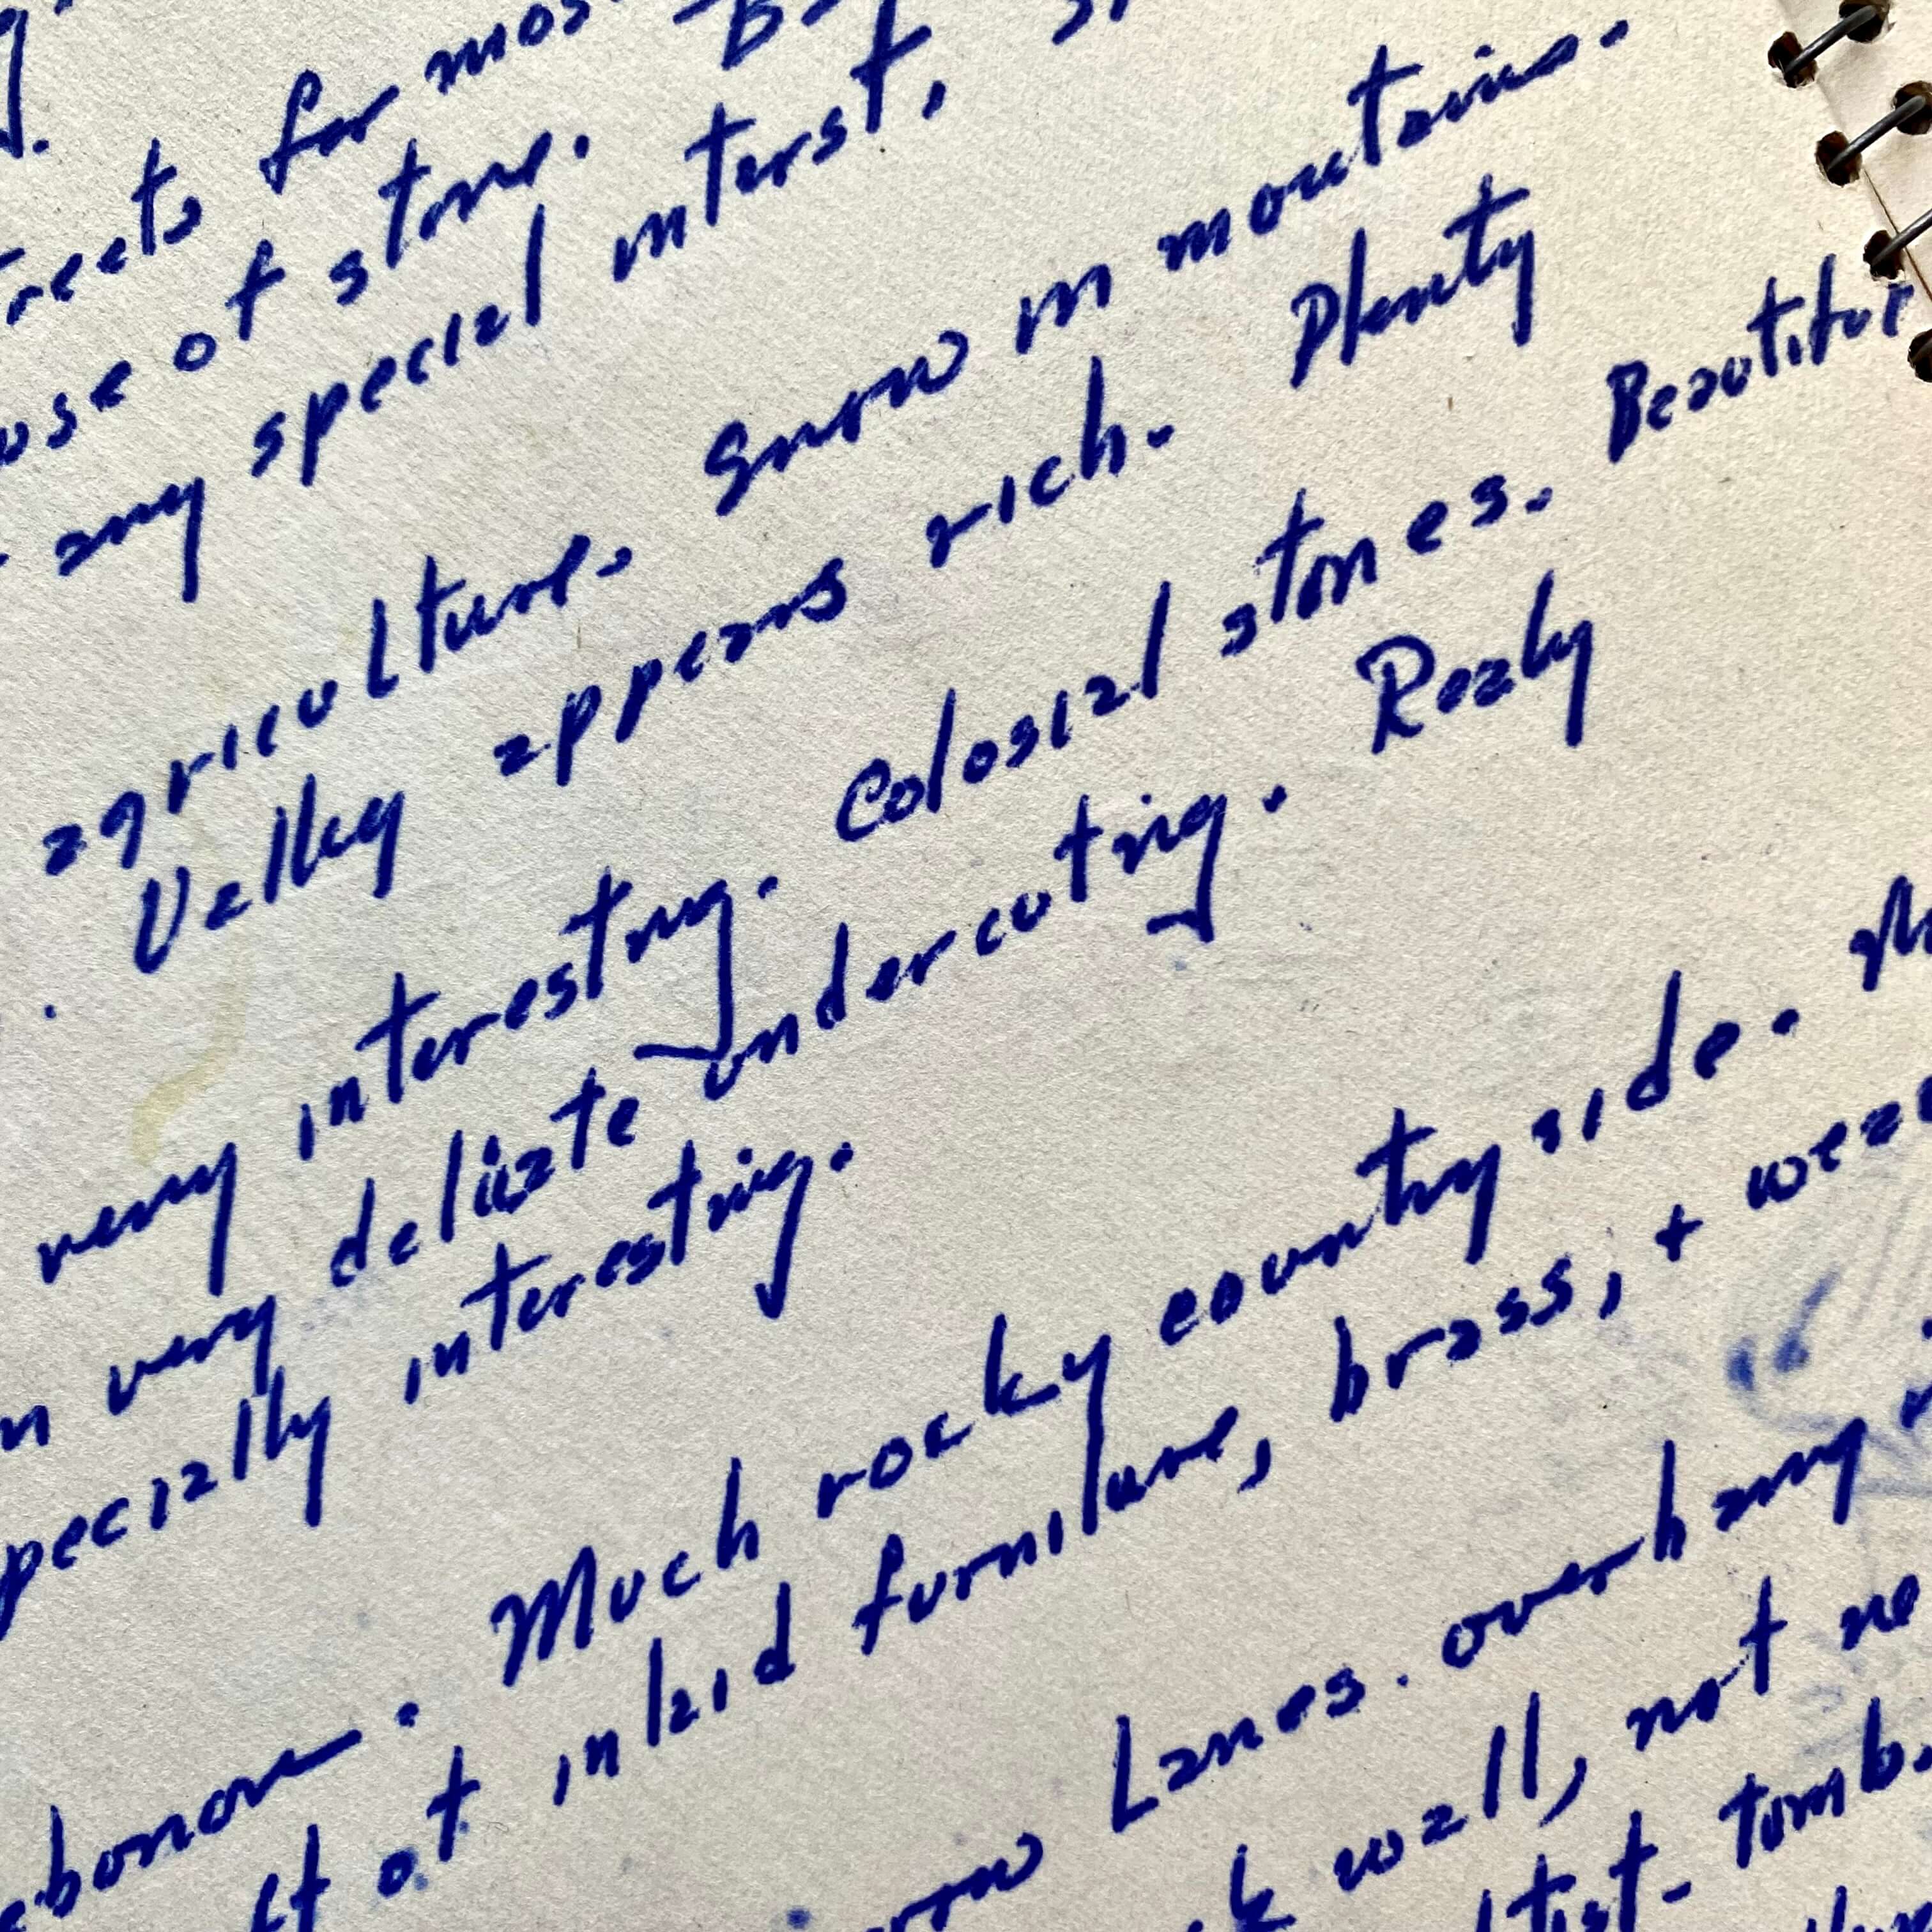 for most
use of stone.
any special interst,
agriculture. Snow in moutains.
Valley appears rich. Plenty
very interesting. Colosial stones. Beautiful
n very deliate undercuting. Realy
pecially interesting.
. Much rocky country side.
ft of inlaid furniture, brass, + wea
row Lanes. overhang
k wall, not ne
tist- tomb.